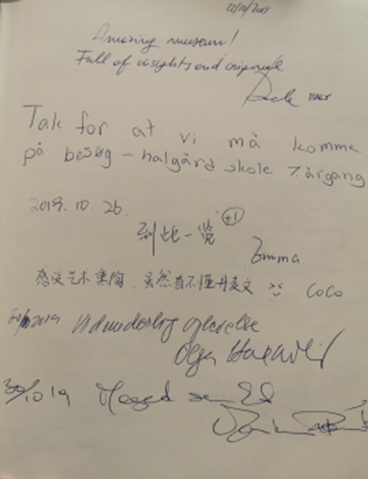 22/10/2019
Amazing museum!
Full of insights and originale
ITALY
Tak for at vi må komme
på besøg - halgård skole 7. årgang
2019.10.26.
到此一览 +1
Emma
感受艺术熏陶.虽然看不懂丹麦文 COCO
2019 Vidunderlig oplevelse
Olga
30/10 19 Meget